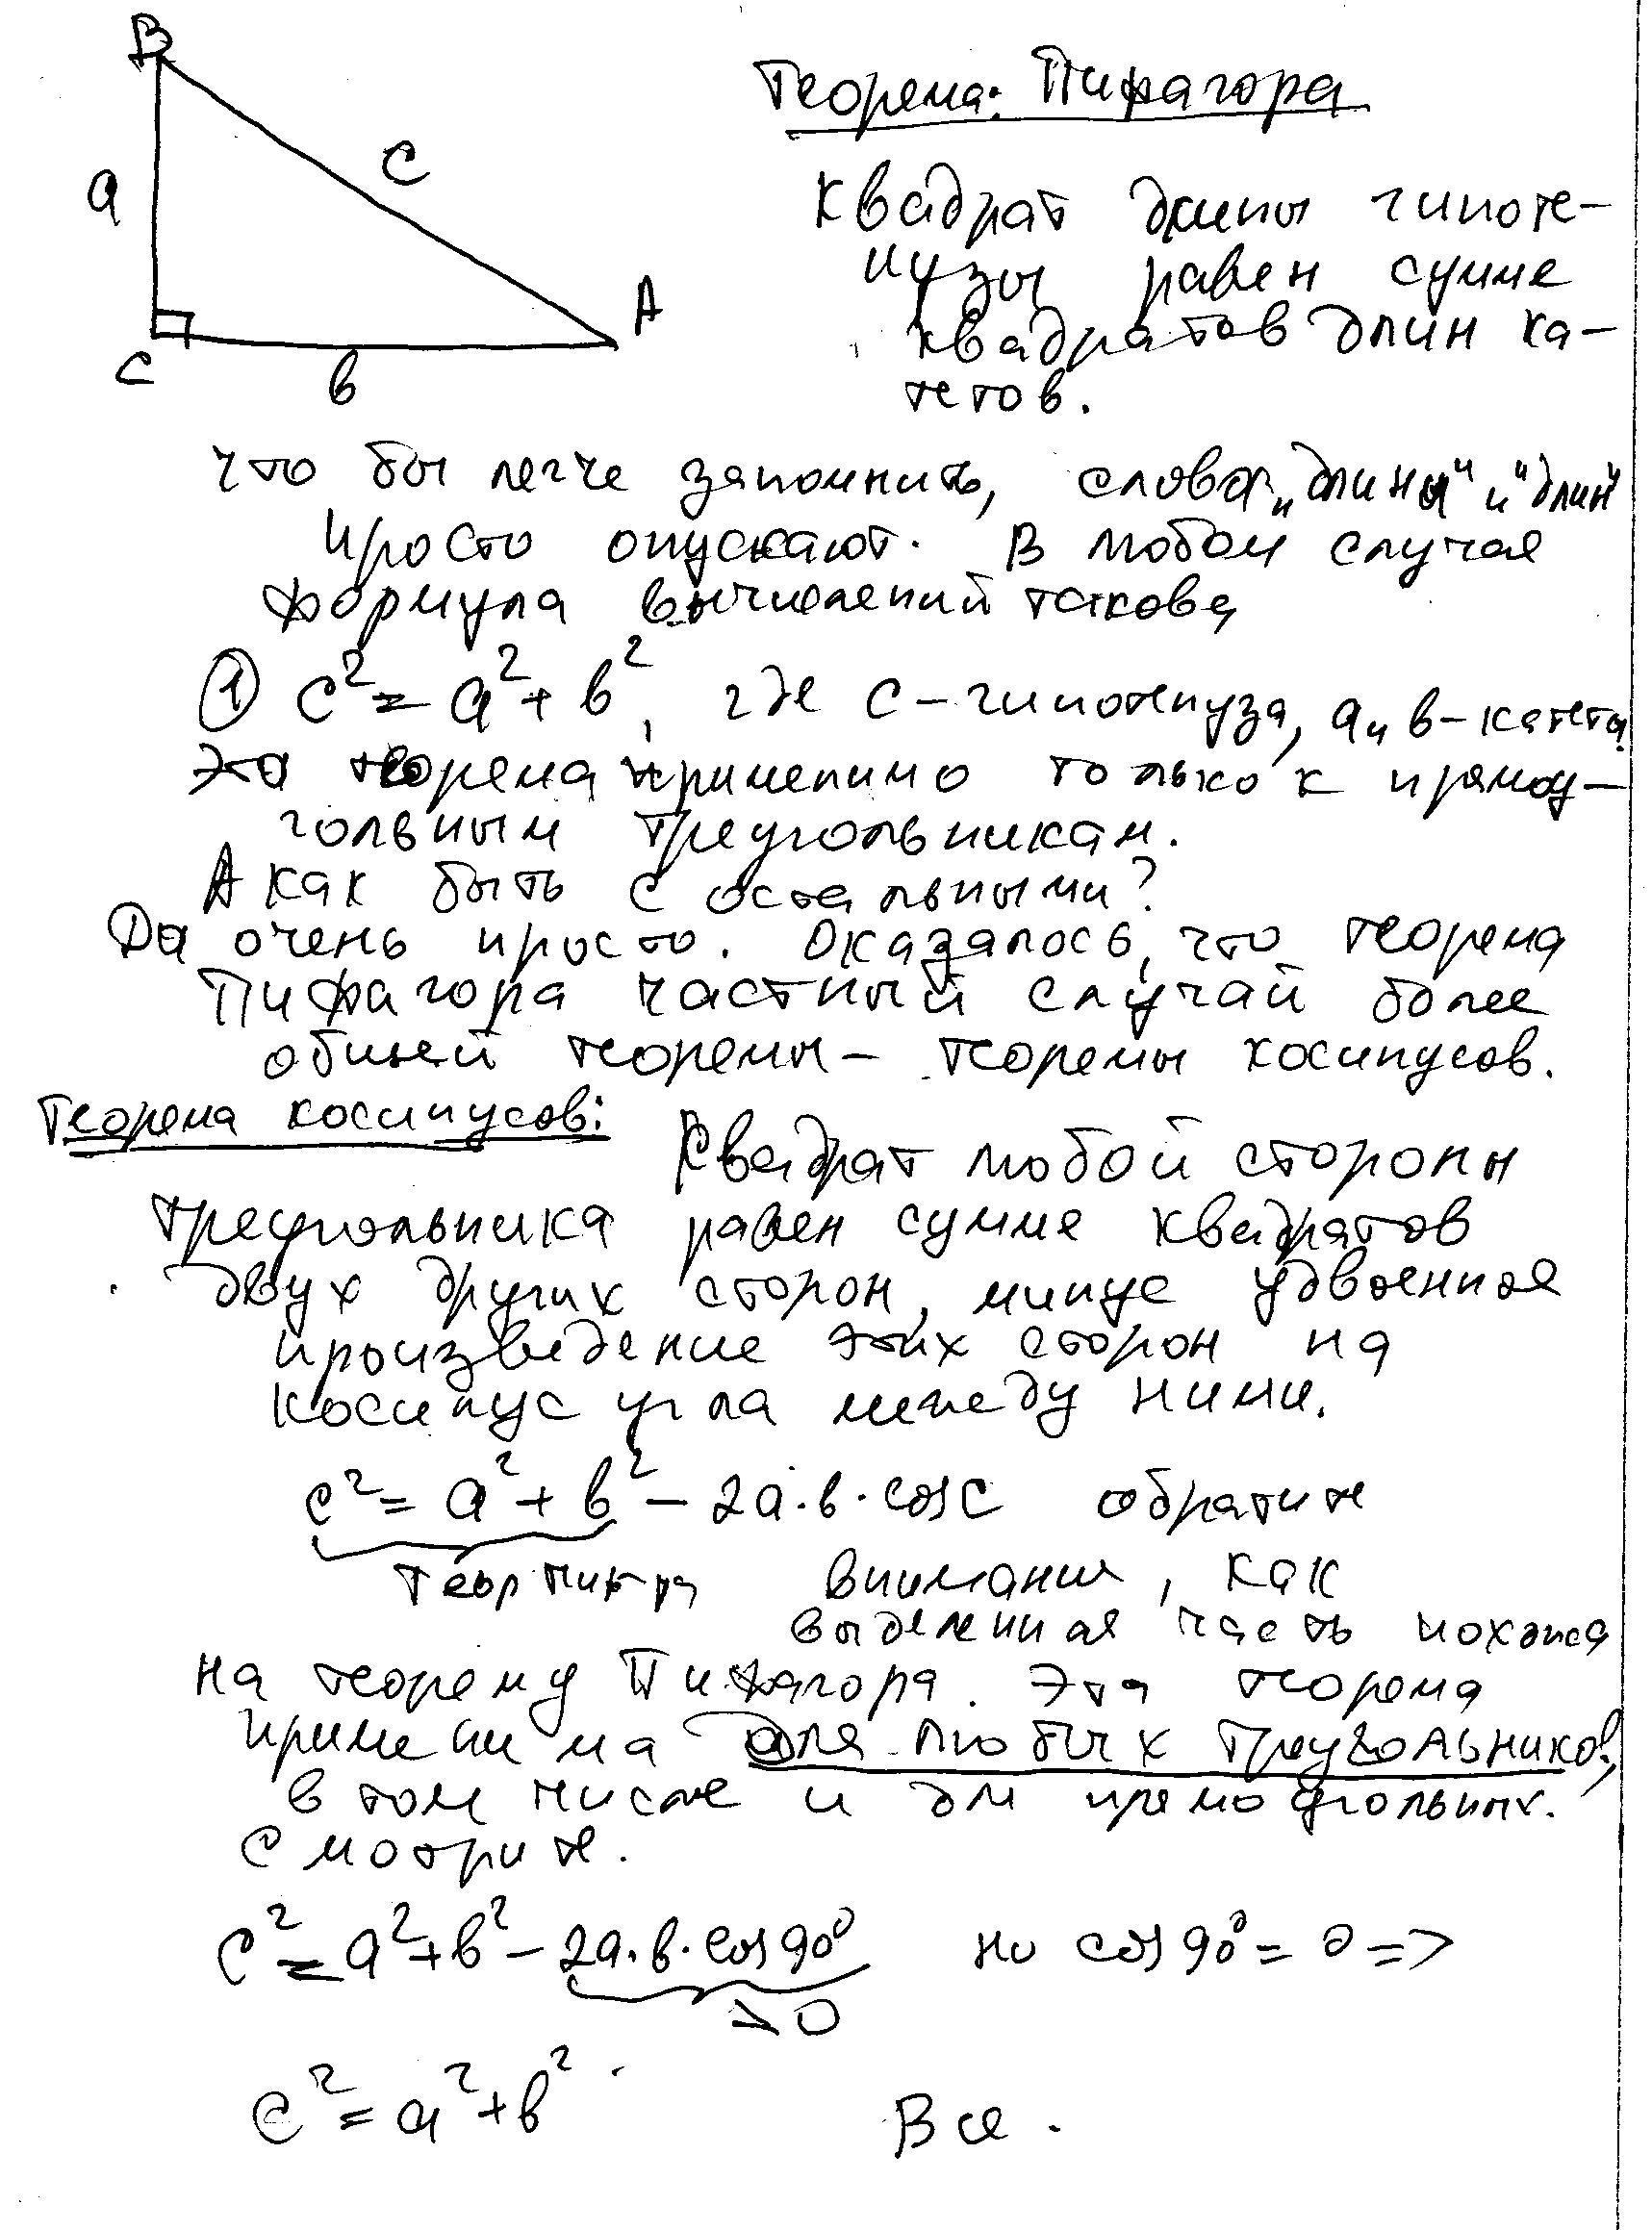 B
a
c
A
C
в
Теорема: Пифагора
Квадрат длины гипоте-
нузы равен сумме
квадратов длин ка-
тетов.
Что бы легче запомнить, слова „длины" и "длин"
просто опускают. В любом случае
формула вычислений такова
① c² = a² + в², где c – гипотенуза, a и в – катеты
Эта теорема применимо только к прямоу-
гольным треугольникам.
А как быть с остальными?
Да очень просто. Оказалось, что теорема
Пифагора частный случай более
общей теоремы – теоремы косинусов.
Теорема косинусов: Квадрат любой стороны
треугольника равен сумме квадратов
двух других сторон, минус удвоенное
произведение этих сторон на
косинус угла между ними.
c² = a² + в² – 2a·в·cos C обратите
внимание, как
выделенная часть похожа
на теорему Пифагора. Эта теорема
применима для любых треугольников,
в том числе и для прямоугольных.
Смотрите.
c² = a² + в² – 2a·в·cos 90° но cos 90° = 0 =>
= 0
c² = a² + в²
Все.